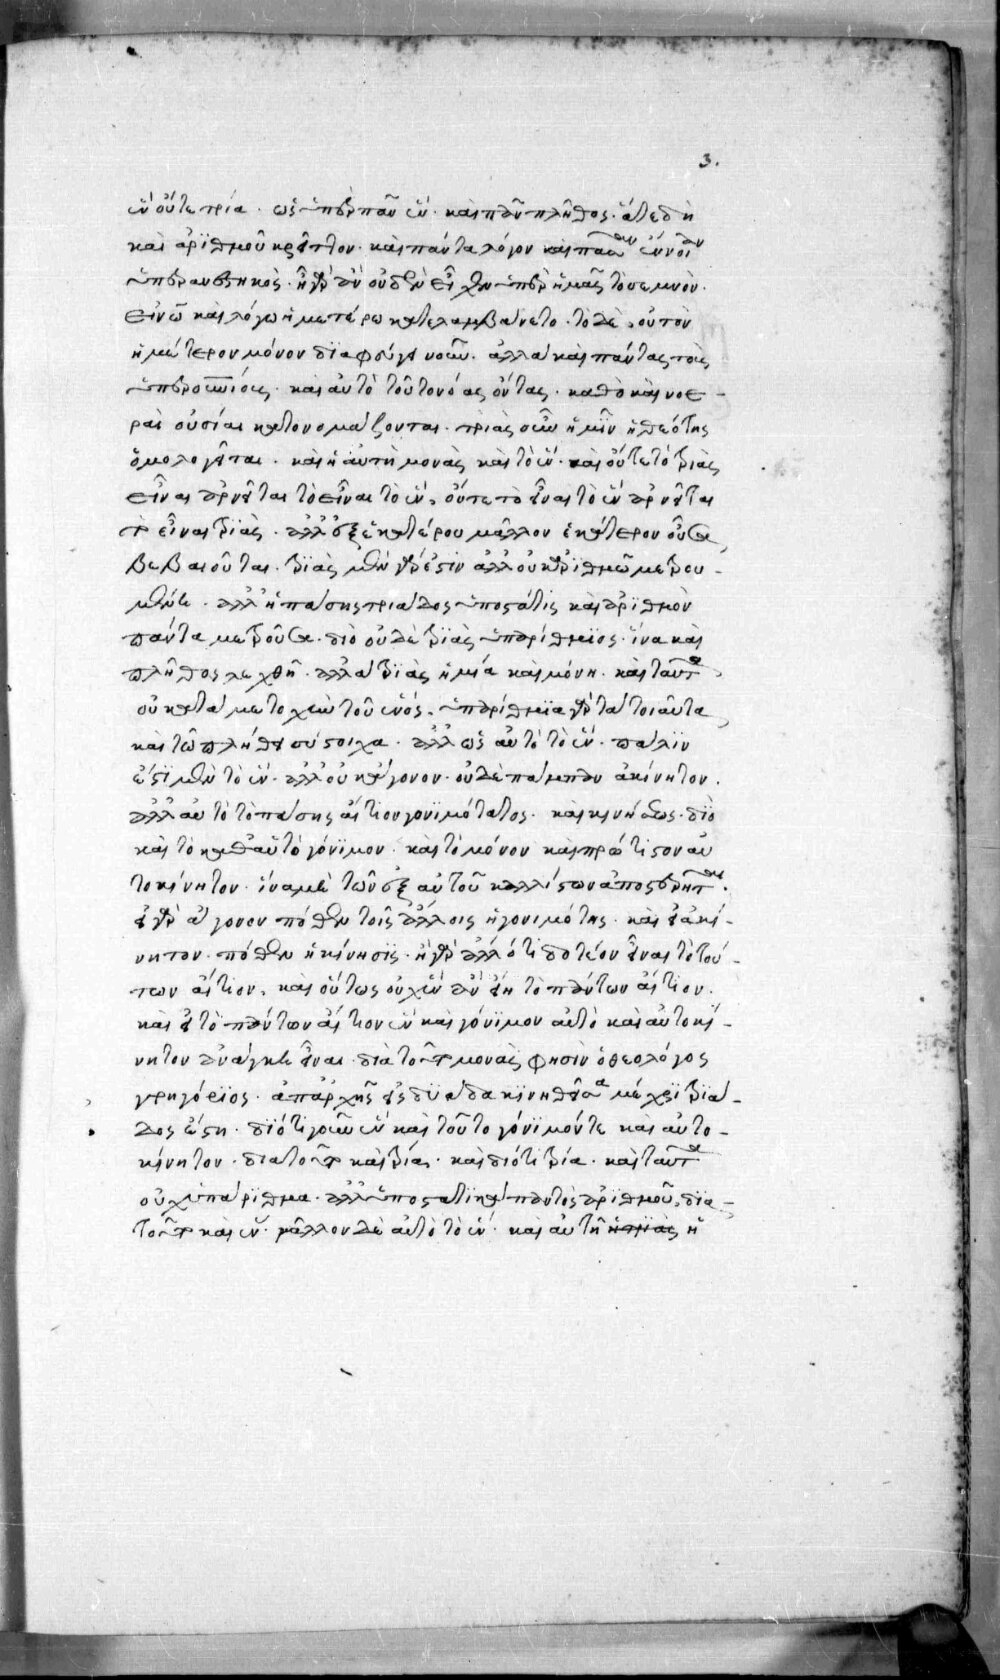 3.
ἓν οὔτε τρία · ὡς ὑπὲρ πᾶν ἓν · καὶ πᾶν πλῆθος · ἅτε δὴ
καὶ ἀριθμοῦ κρεῖττον · καὶ πάντα λόγον καὶ πᾶσαν ἔννοιαν
ὑπεραναβεβηκὸς · ἢ γὰρ ἂν οὐδὲν εἶχεν ὑπὲρ ἡμᾶς τὸ σεμνὸν ·
εἰ νῷ καὶ λόγῳ ἡμετέρῳ κατελαμβάνετο · τὸ δὲ, οὐ τὸν
ἡμέτερον μόνον διαφεύγει νοῦν · ἀλλὰ καὶ πάντας τοὺς
ὑπερουσίους · καὶ αὐτὸ τοῦτο νόας ὄντας · καθὸ καὶ νοε-
ραὶ οὐσίαι κατονομάζονται · τριὰς οὖν ἡμῖν ἡ θεότης
ὁμολογεῖται · καὶ ἡ αὐτὴ μονὰς καὶ τὸ ἓν · καὶ οὔτε τὸ τριὰς
εἶναι ἀρνεῖται τὸ εἶναι τὸ ἓν, οὔτε τὸ εἶναι τὸ ἓν ἀρνεῖται
τὸ εἶναι τριὰς · ἀλλ' ἐξ ἑκατέρου μᾶλλον ἑκάτερον οὖσα
βεβαιοῦται · τριὰς μὲν γάρ ἐστιν ἀλλ' οὐκ ἀριθμῷ μετρου-
μένη · ἀλλ' ἡ πάσης τριάδος ὑποστάτις καὶ ἀριθμὸν
πάντα μετροῦσα · διὸ οὐδὲ τριὰς ὑπαρίθμιος · ἵνα καὶ
πλῆθος λεχθῇ · ἀλλὰ τριὰς ἡ μία καὶ μόνη · καὶ ταῦτα
οὐ κατὰ μετοχὴν τοῦ ἑνός · ὑπαρίθμια γὰρ τὰ τοιαῦτα
καὶ τῷ πλήθει σύστοιχα · ἀλλ' ὡς αὐτὸ τὸ ἓν · πάλιν
ἐστὶ μὲν τὸ ἓν · ἀλλ' οὐκ ἄγονον · οὐδὲ πάμπαν ἀκίνητον ·
ἀλλ' αὐτὸ τὸ πάσης αἴτιον γονιμότητος · καὶ κινήσεως · διὸ
καὶ τὸ καθ' αὑτὸ γόνιμον · καὶ τὸ μόνον καὶ πρώτιστον αὐ
τοκίνητον · ἵνα μὴ τῶν ἐξ αὐτοῦ καλλίστων ἀποστερῆται ·
εἰ γὰρ ἄγονον πόθεν τοῖς ἄλλοις ἡ γονιμότης · καὶ εἰ ἀκί-
νητον · πόθεν ἡ κίνησις · ἢ γὰρ ἄλλό τι δοτέον εἶναι τὸ τού-
των αἴτιον, καὶ οὕτως οὐχ ἓν ἂν εἴη τὸ πάντων αἴτιον ·
καὶ εἰ τὸ πάντων αἴτιον ἓν καὶ γόνιμον αὐτὸ καὶ αὐτοκί-
νητον ἀνάγκη εἶναι · διὰ τοῦτο μονὰς φησὶν ὁ θεολόγος
γρηγόριος · ἀπ' ἀρχῆς εἰς δυάδα κινηθεῖσα μέχρι τριά-
δος ἔστη · διότι γοῦν ἓν καὶ τοῦτο γόνιμόν τε καὶ αὐτο-
κίνητον · διατοῦτο καὶ τρία · καὶ διότι τρία · καὶ ταῦτα
οὐχ ὑπάριθμα · ἀλλ' ὑποστατικὰ παντὸς ἀριθμοῦ, δια-
τοῦτο καὶ ἓν · μᾶλλον δὲ αὐτὸ τὸ ἓν · καὶ αὐτὴ ἡ τριὰς ἡ